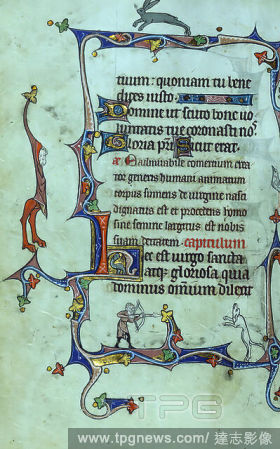 tuum: quoniam tu bene
dices iusto.
Domine ut scuto bone uo
luntatis tue coronasti nos
Gloria pri Sicut erat
O admirabile comertium crea
tor generis humani animatum
corpus sumens de virgine nasci
dignatus est et procedens homo
sine semine largitus est nobis
suam deitatem. capitulum
Hec est uirgo sancta
atq; gloriosa quia
dominus omnium dilexit
TPG
www.tpgnews.com / 達志影像